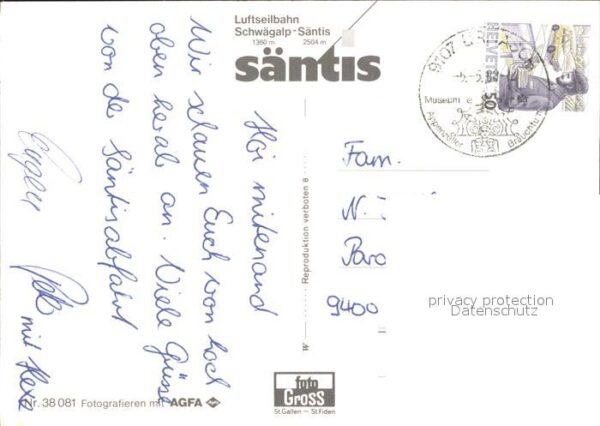 Luftseilbahn
Schwägalp - Säntis
1360 m 2504 m
säntis
Hoi mitenand
Wir schauen Euch von hoch
oben herab an. Viele Grüsse
von der Säntisabfahrt
mit Hexe
Fam.
N.
9400
privacy protection
Datenschutz
HELVETIA
50
9107
Museum
Appenzeller Brauchtum
W
Reproduktion verboten 8
Nr. 38 081 Fotografieren mit AGFA
foto
GROSS
St.Gallen — St.Fiden